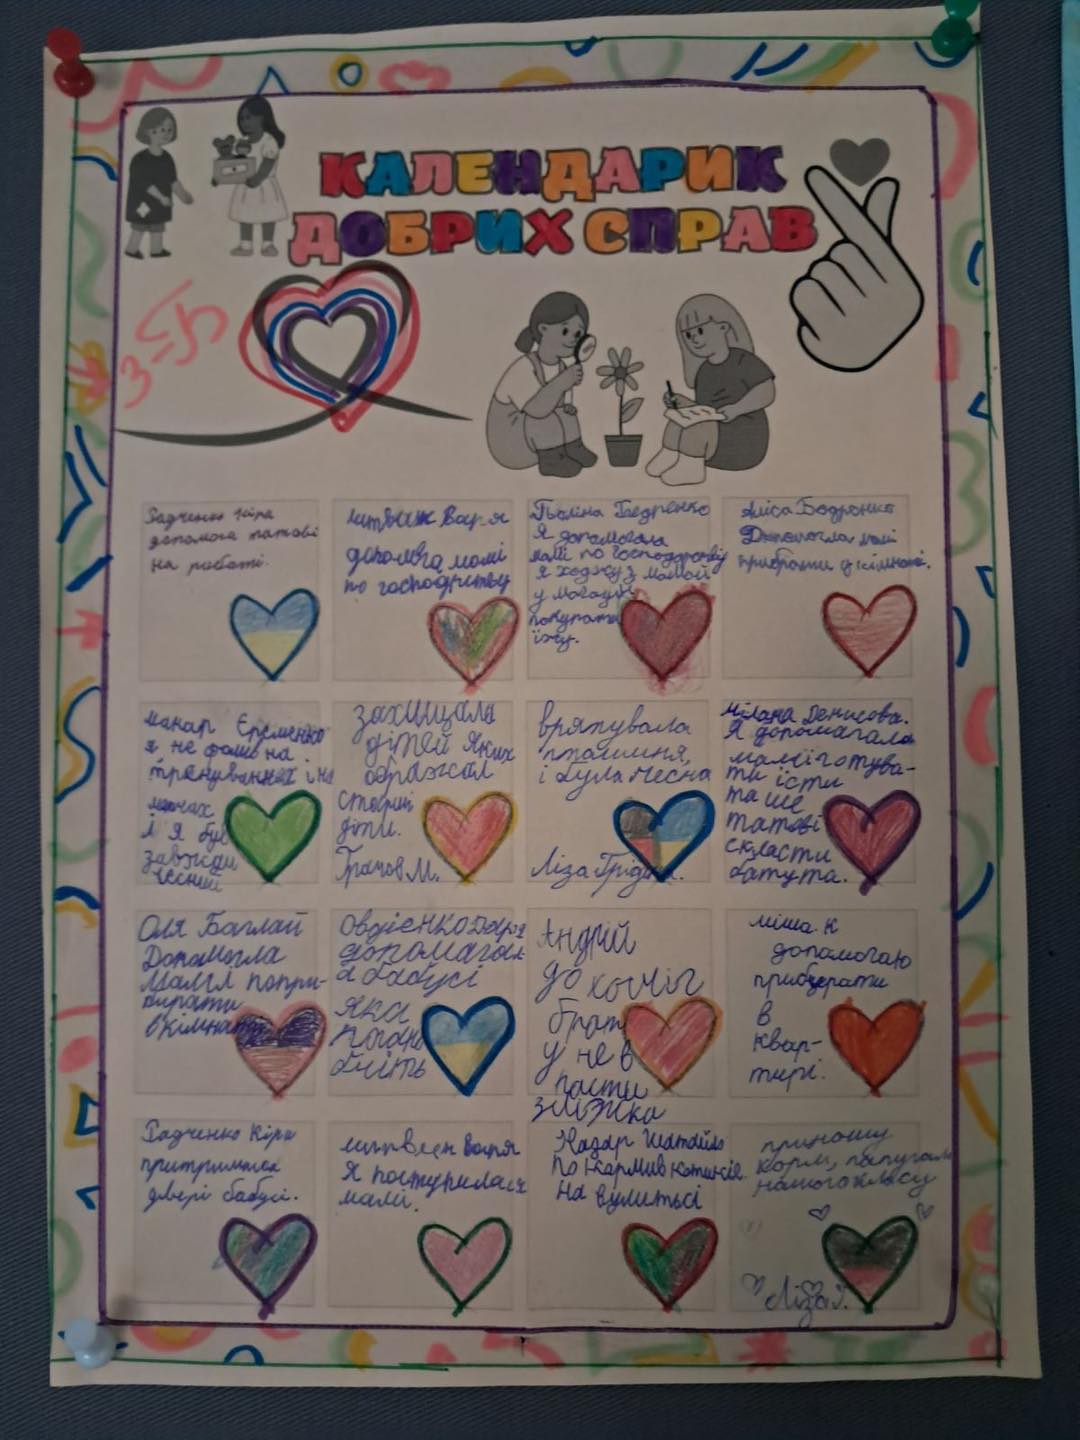 КАЛЕНДАРИК
ДОБРИХ СПРАВ
3-Б
Радченко Кіра
допомога татові
на работі.
Варя
допомога мамі
по господрству
Поліна Бедренко
Я допомогала
мамі по господорстві
я ходжу з мамой
у магазин
покупати
їжу.
Аліса Бодренко
Допомогла мамі
прибрати у кімнаті.
Єременко
я не фолю на
тренуваннях і на
мачах
і я був
завжди
чесний
захищала
дітей яких
ображал
старші
діти.
Грачов М.
врятувала
пташиня,
і була чесна
Ліза
Мілана Денисова.
Я допомагала
мамі готува-
ти їсти
та ще
татові
скласти
батута.
Оля Баглай
Допомогла
мамі попри-
бирати
в кімнаті
Овдієнко Даря
допомагал
а бабусі
яка
погано
бчить
Андрій
до
брат
у не в
пасти
з ліжка
міша К
допомогаю
приберати
в
квар-
тирі.
Радченко Кіра
притрималa
двері бабусі.
Варя
я поступилася
мамі.
Назар
покормив котиків
на вулитьсі
приношу
корм, папугам
нашого класу
Ліза